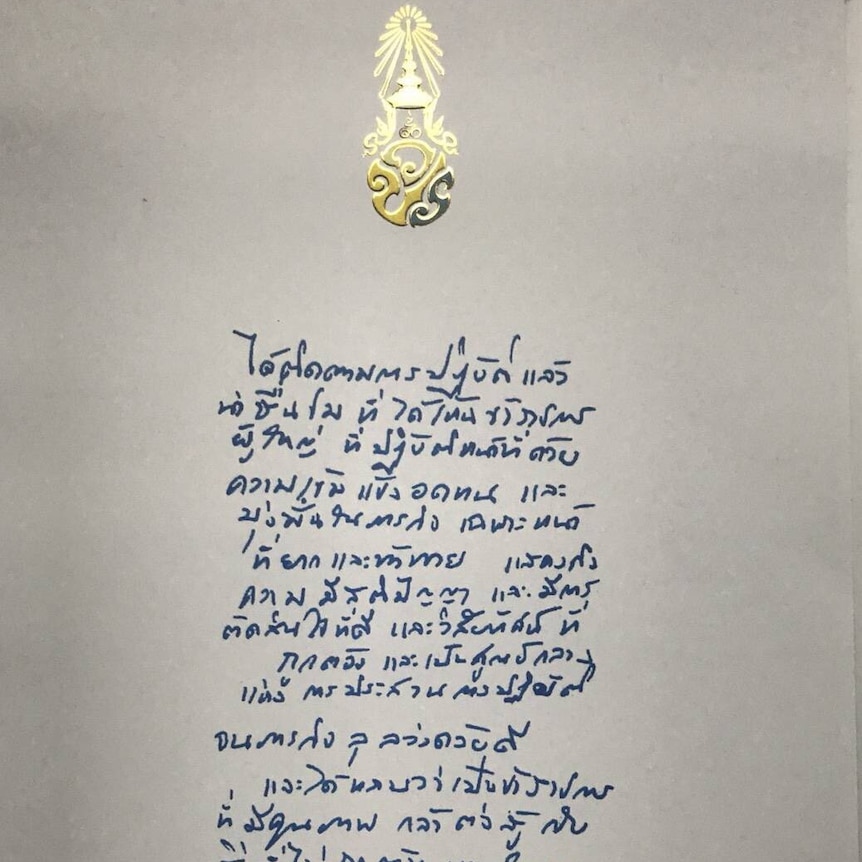 ได้ติดตามการปฏิบัติ แล้ว
น่าชื่นชม ที่ได้เห็นข้าราชการ
ผู้ใหญ่ ที่ปฏิบัติหน้าที่ด้วย
ความเข้มแข็ง อดทน และ
มุ่งมั่นในภารกิจ เฉพาะหน้า
ที่ยากและท้าทาย แสดงถึง
ความมีสติปัญญา และมีการ
ตัดสินใจที่ดี และวิสัยทัศน์ ที่
ถูกต้อง และเป็นศูนย์กลาง
แห่ง การประสานการปฏิบัติ
จนภารกิจลุล่วงด้วยดี
และได้ทราบว่าเป็นข้าราชการ
ที่มีคุณภาพ กล้าต่อสู้กับ